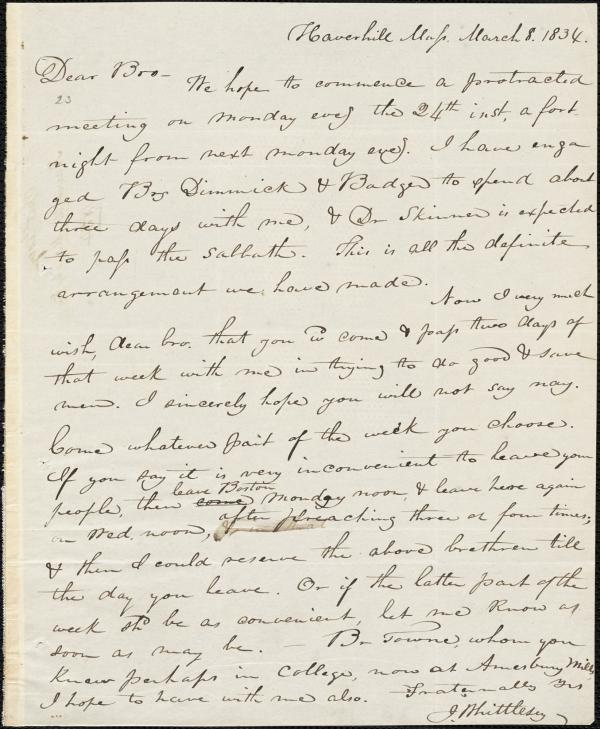 Haverhill Mass. March 8. 1834.
Dear Bro- We hope to commence a protracted
23
meeting on monday eveg the 24th inst, a fort-
night from next monday eveg. I have enga
ged Brs Dimmick & Badger to spend about
three days with me, & Dr Skinner is expected
to pass the Sabbath. This is all the definite
arrangement we have made.
Now I very much
wish, dear bro. that you wd come & pass two days of
that week with me in trying to do good & save
men. I sincerely hope you will not say nay.
Come whatever part of the week you choose.
If you say it is very inconvenient to leave your
people, then leave Boston come monday noon, & leave here again
on Wed. noon, after preaching three or four times;
& then I could reserve the above brethren till
the day you leave. Or if the latter part of the
week shd be as convenient, let me know as
soon as may be. - Br Towne, whom you
knew perhaps in College, now at Amesbury Mills,
I hope to have with me also. Fraternally Yrs
J. Whittlesey